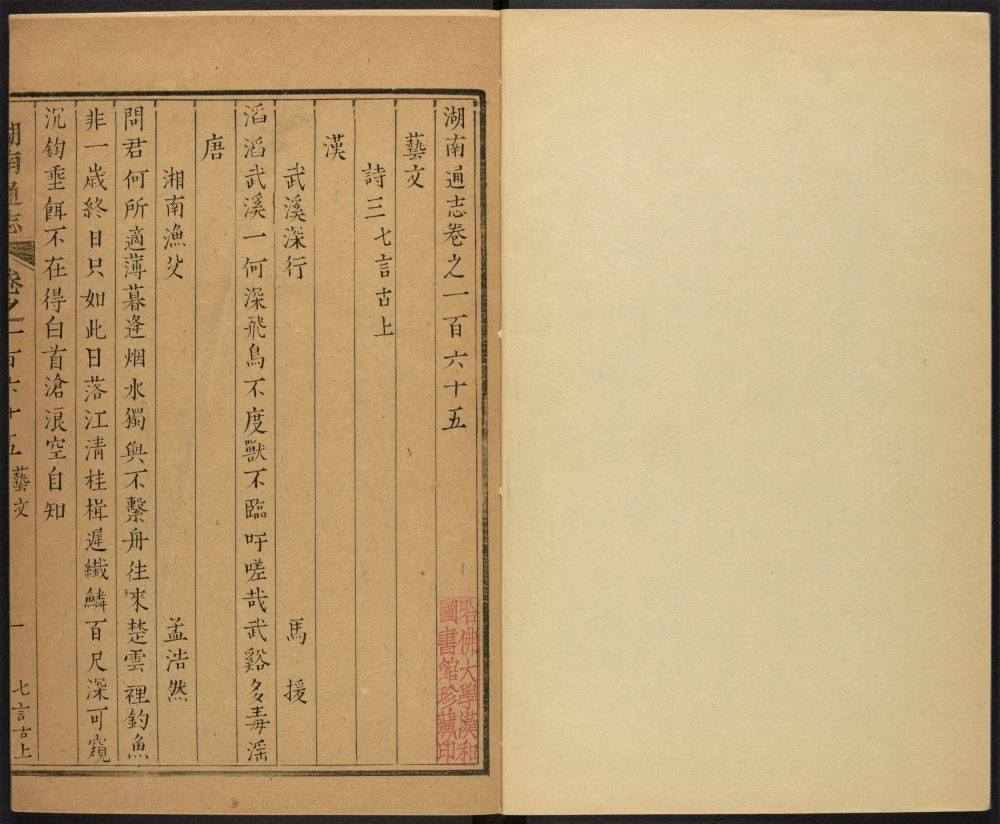 湖南通志卷之一百六十五
藝文
詩三 七言古上
漢
武溪深行 馬援
滔滔武溪一何深飛鳥不度獸不臨吁嗟哉武谿多毒滛
唐
湘南漁父 孟浩然
問君何所適薄暮逄烟水獨與不繫舟徃來楚雲裡釣魚
非一歲終日只如此日落江清桂楫遲纎鱗百尺深可窺
沉鈎垂餌不在得白首滄浪空自知
湖南通志 卷之一百六十五 藝文 一 七言古上
哈佛大學漢和
圖書館珍藏印